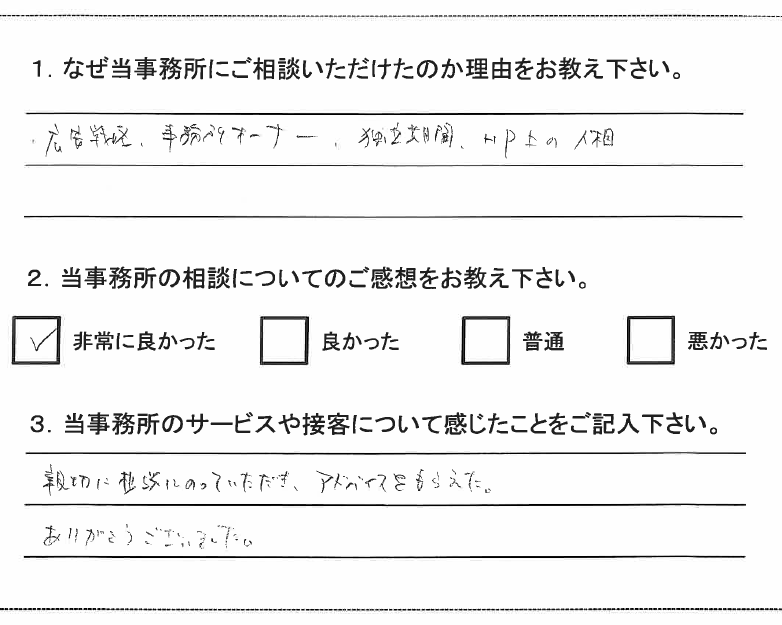 1. なぜ当事務所にご相談いただけたのか理由をお教え下さい。
・広告戦略、事務所オーナー、独立期間、HP上の人相
2. 当事務所の相談についてのご感想をお教え下さい。
✓ 非常に良かった 良かった 普通 悪かった
3. 当事務所のサービスや接客について感じたことをご記入下さい。
親切に相談にのっていただき、アドバイスをもらえた。
ありがとうございました。